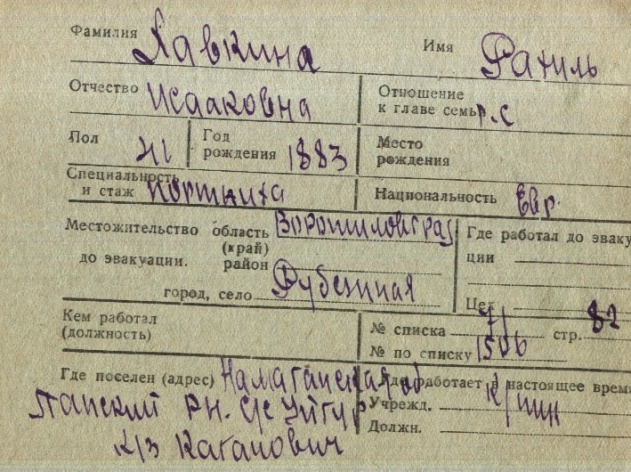 Фамилия Хавкина Имя Рахиль
Отчество Исааковна Отношение к главе семьи р.с
Пол Ж Год рождения 1883 Место рождения
Специальность и стаж портниха Национальность Евр.
Местожительство до эвакуации. область (край) Ворошиловград Где работал до эваку
район ции
город, село Рубежная Цех
Кем работал (должность) № списка 71 стр. 82
№ по списку 1506
Где поселен (адрес) Наманганская об Где работает в настоящее врем
Папский рн. с/с Уйгур Учрежд.
к/з Каганович Должн.